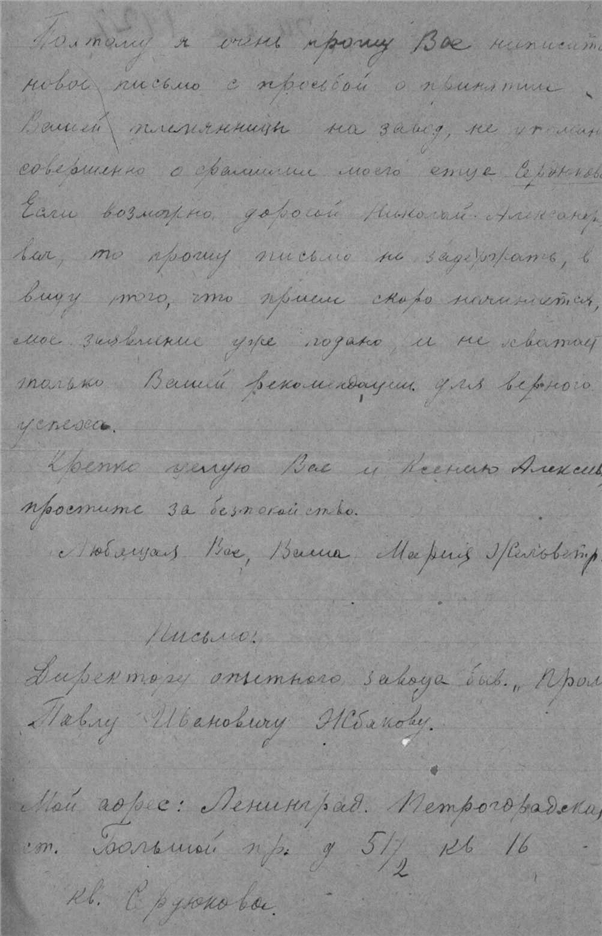 Поэтому я очень прошу Вас написать
новое письмо с просьбой о принятии
Вашей племянницы на завод, не упомин
совершенно о фамилии моего отца
Если возможно, дорогой Николай Александр
вич, то прошу письмо не задержать, в
виду того, что прием скоро начинается,
мое заявление уже подано и не хватает
только Вашей рекомендации для верного
успеха.
Крепко целую Вас и Ксению Алексеев
простите за безпокойство.
Любящая Вас, Ваша Мария
Письмо:
Директору опытного завода быв. „Пром
Павлу Ивановичу Жбакову.
Мой адрес: Ленинград. Петрогорадская
ст. Большой пр. д 51/2 кв 16
кв.